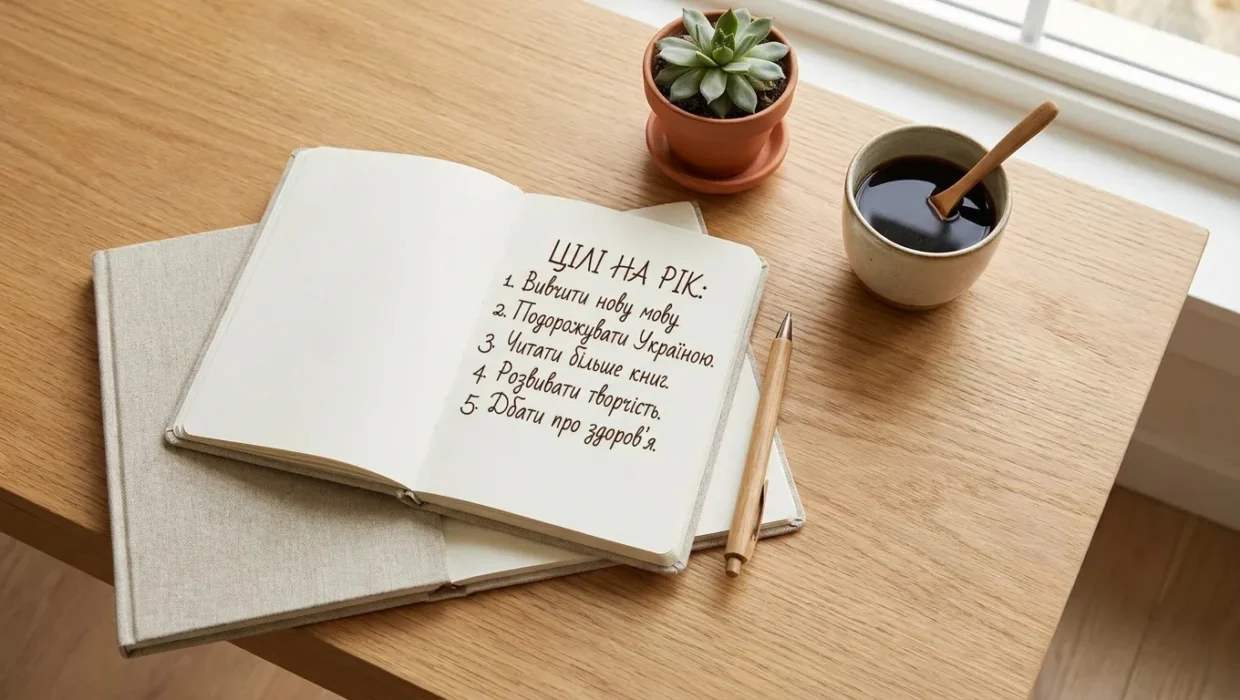 ЦІЛІ НА РІК:
1. Вивчити нову мову
2. Подорожувати Україною.
3. Читати більше книг.
4. Розвивати творчість.
5. Дбати про здоров'я.